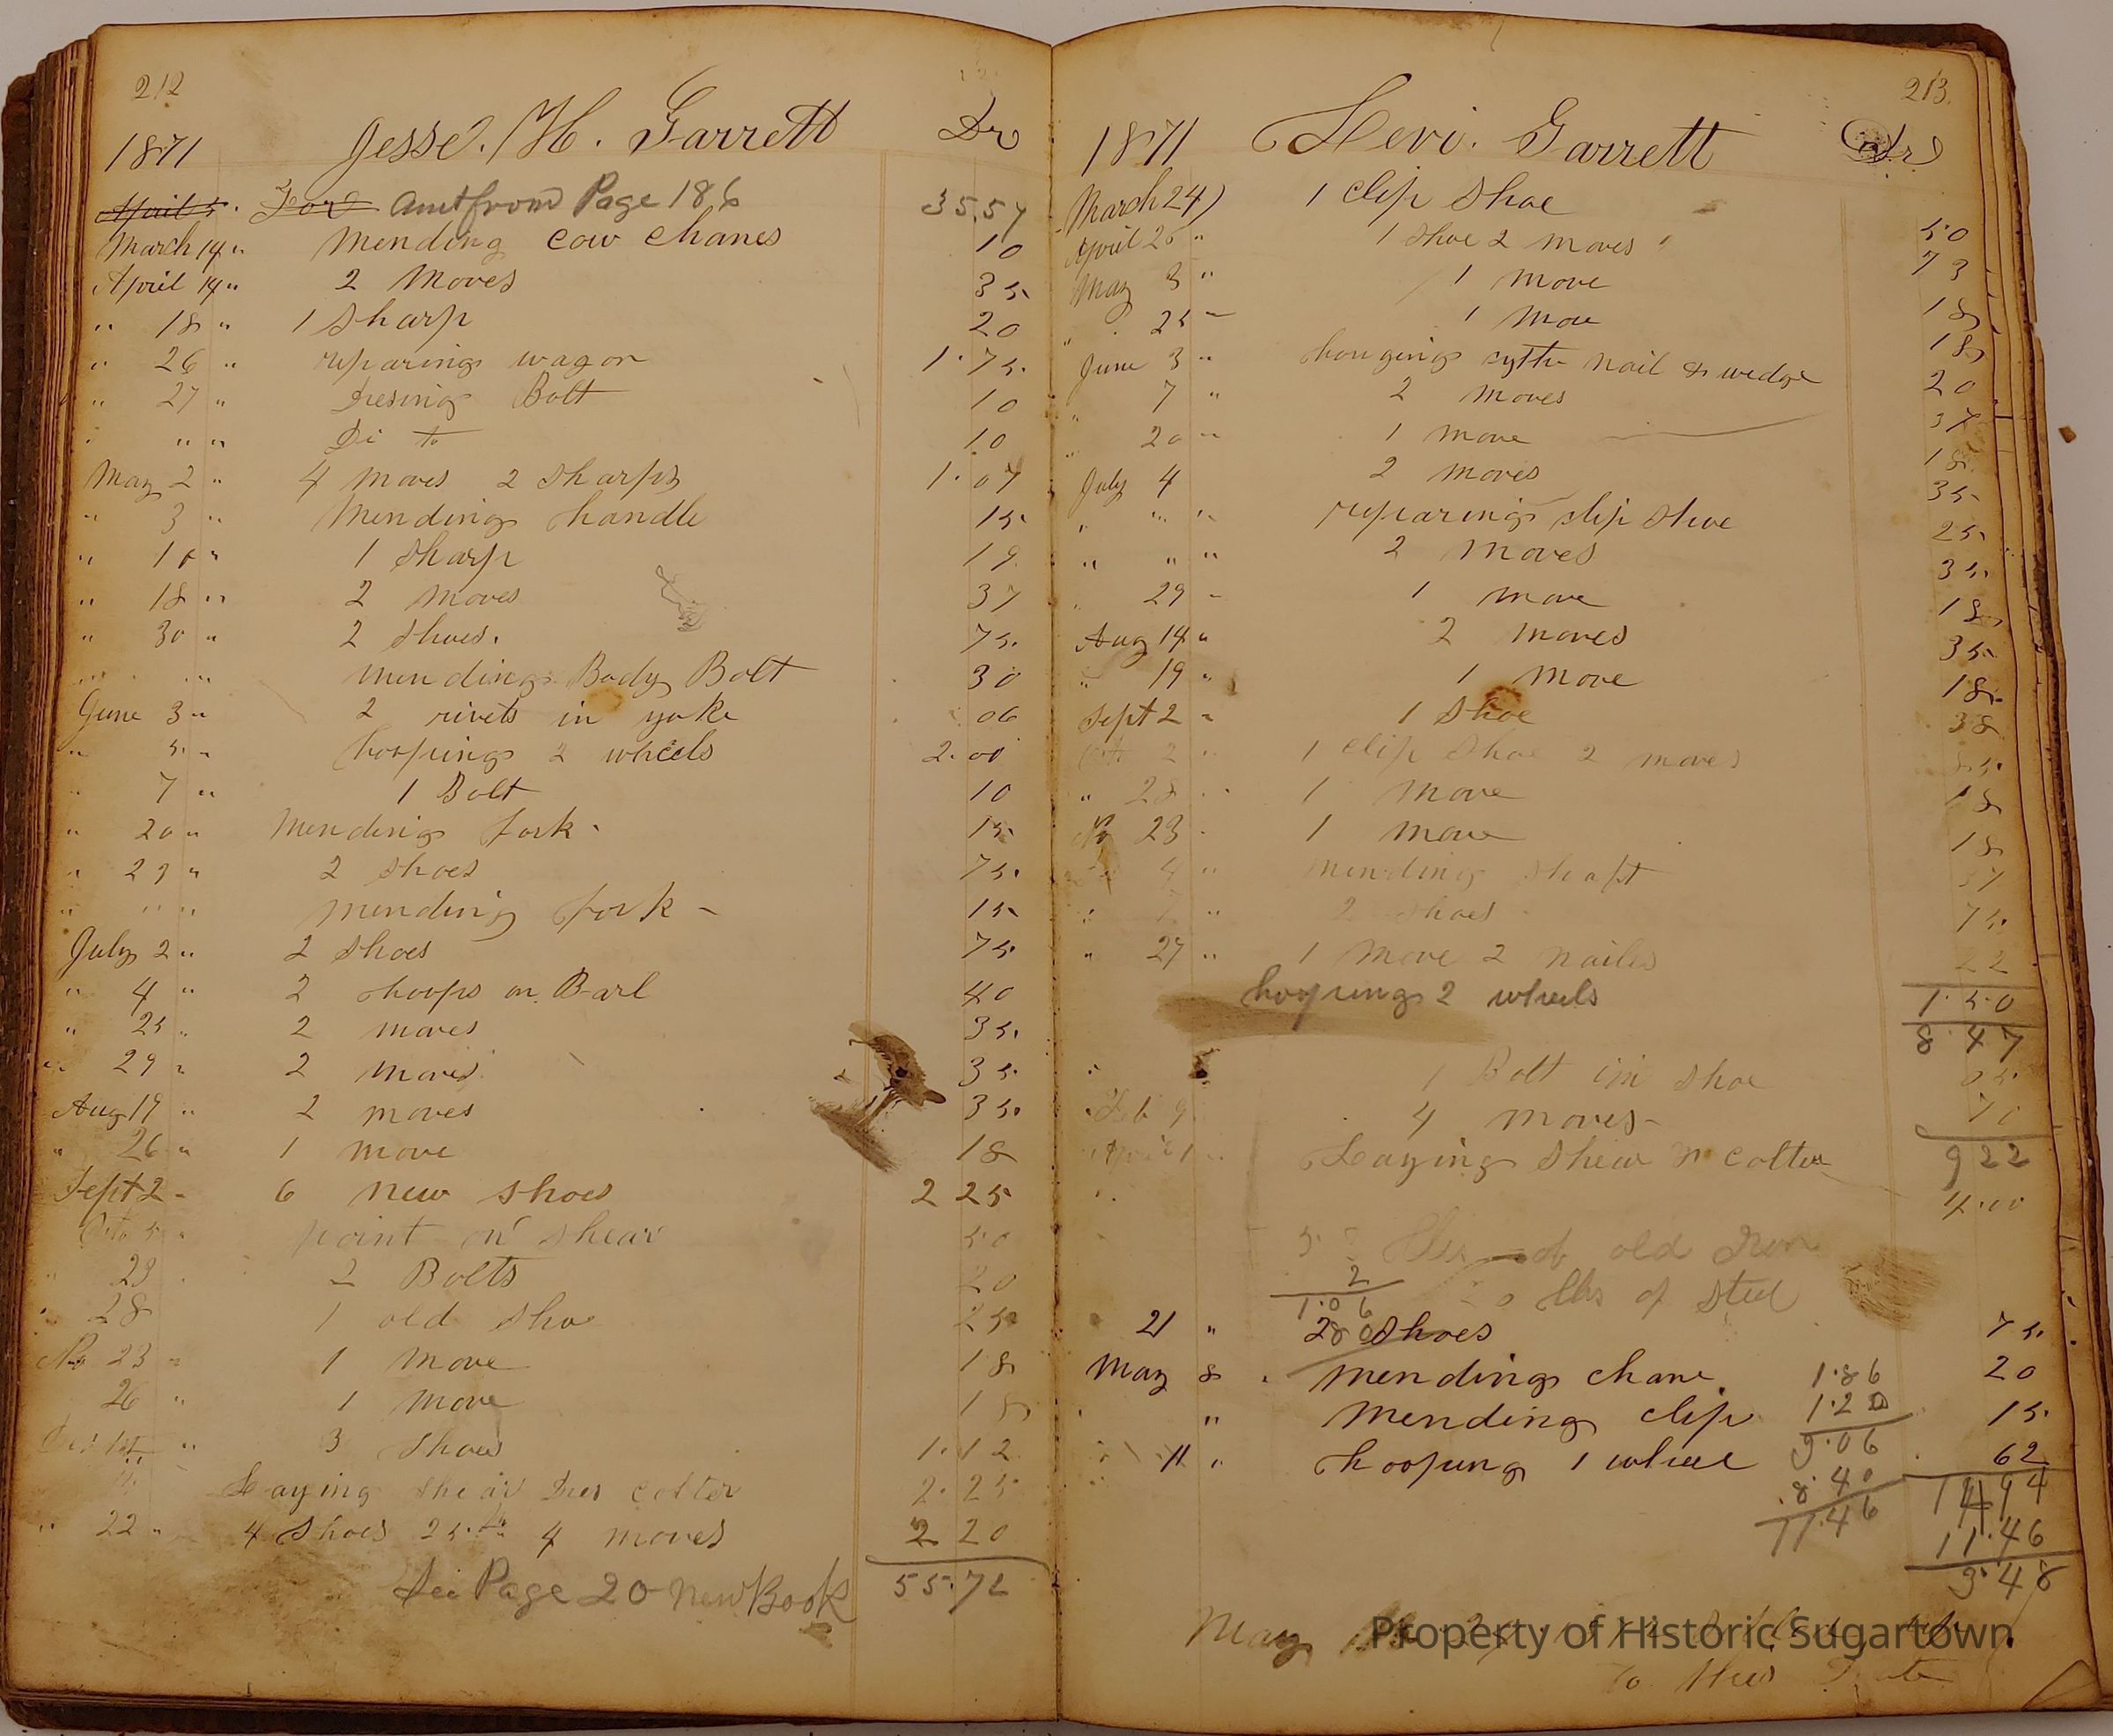 212
1871 Jesse. H. Garrett Dr
April 5. For amt from Page 186 35.57
March 14 " Mending cow chanes 10
April 14 " 2 Moves 35
" 18 " 1 Sharp 20
" 26 " reparing wagon 1.75
" 27 " Bolt 10
" " " Di to 10
May 2 " 4 moves 2 Sharps 1.07
" 3 " Mending handle 15
" " 1 Sharp 19
" 18 " 2 moves 37
" 30 " 2 Shoes. 75
" " mending Body Bolt 30
June 3 " 2 rivets in yoke 06
" 5 " hooping 2 wheels 2.00
" 7 " 1 Bolt 10
" 20 " Mending fork 15
" 29 " 2 Shoes 75
" " " mending fork - 15
July 2 " 2 Shoes 75
" 4 " 2 hoops on Barl 40
" 25 " 2 moves 35
" 29 " 2 moves 35
Aug 19 " 2 moves 35
" 26 " 1 move 18
Sept 2 - 6 new shoes 2 25
Oct 5 " point on shear 50
" 23 2 Bolts 20
" 28 1 old Shoe 25
No 23 " 1 move 18
26 " 1 move 18
" 3 Shoes 1.12
Laying shear colter 2.25
" 22 " 4 Shoes 4 moves 2 20
Page 20 New Book 55.72
213
1871 Levi. Garrett Dr
March 24) 1 clip Shoe 50
April 26 " 1 shoe 2 moves 73
May 3 " 1 move 18
" 25 - 1 move 18
June 3 " hanging sythe nail & wedge 20
" 7 " 2 moves 37
" 20 " 1 move 18
July 4 2 moves 35
" " " reparing clip Shoe 25
" " " 2 moves 35
" 29 - 1 move 18
Aug 14 " 2 moves 35
" 19 " 1 move 18
Sept 2 - 1 Shoe 38
2 " 1 clip Shoe 2 moves 85
" 28 " 1 move 18
No 23 1 move 18
4 " mending shaft 37
" 7 " 2 Shoes 75
" 27 " 1 move 2 nailes 22
hooping 2 wheels 1.50
8.47
" 1 Bolt in shoe 05
" Feb 9 4 moves - 70
9 22
" April 1 " Laying Shear colter 4.00
of old Iron
2
1.06 lbs of Steel
" 21 " 2 Shoes 75
280
May 8 " mending chane 1.86 20
" mending clip 1.20 15
" 11 " hooping 1 wheel 3.06 62
8.40 14 94
11.46 11.46
3.48
May
Property of Historic Sugartown.
To this Date